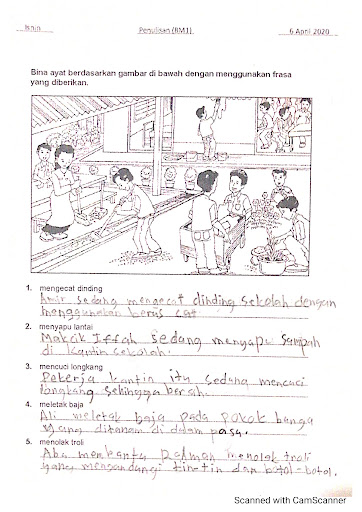 Isnin Penulisan (BM1) 6 April 2020
Bina ayat berdasarkan gambar di bawah dengan menggunakan frasa
yang diberikan.
1. mengecat dinding
Amir sedang mengecat dinding sekolah dengan
menggunakan berus cat.
2. menyapu lantai
Makcik Iffah sedang menyapu sampah
di kantin sekolah.
3. mencuci longkang
Pekerja kantin itu sedang mencuci
longkang sehingga bersih.
4. meletak baja
Ali meletak baja pada pokok bunga
yang ditanam di dalam pasu.
5. menolak troli
Abu membantu Rahman menolak troli
yang mengandungi tin-tin dan botol-botol.
Scanned with CamScanner